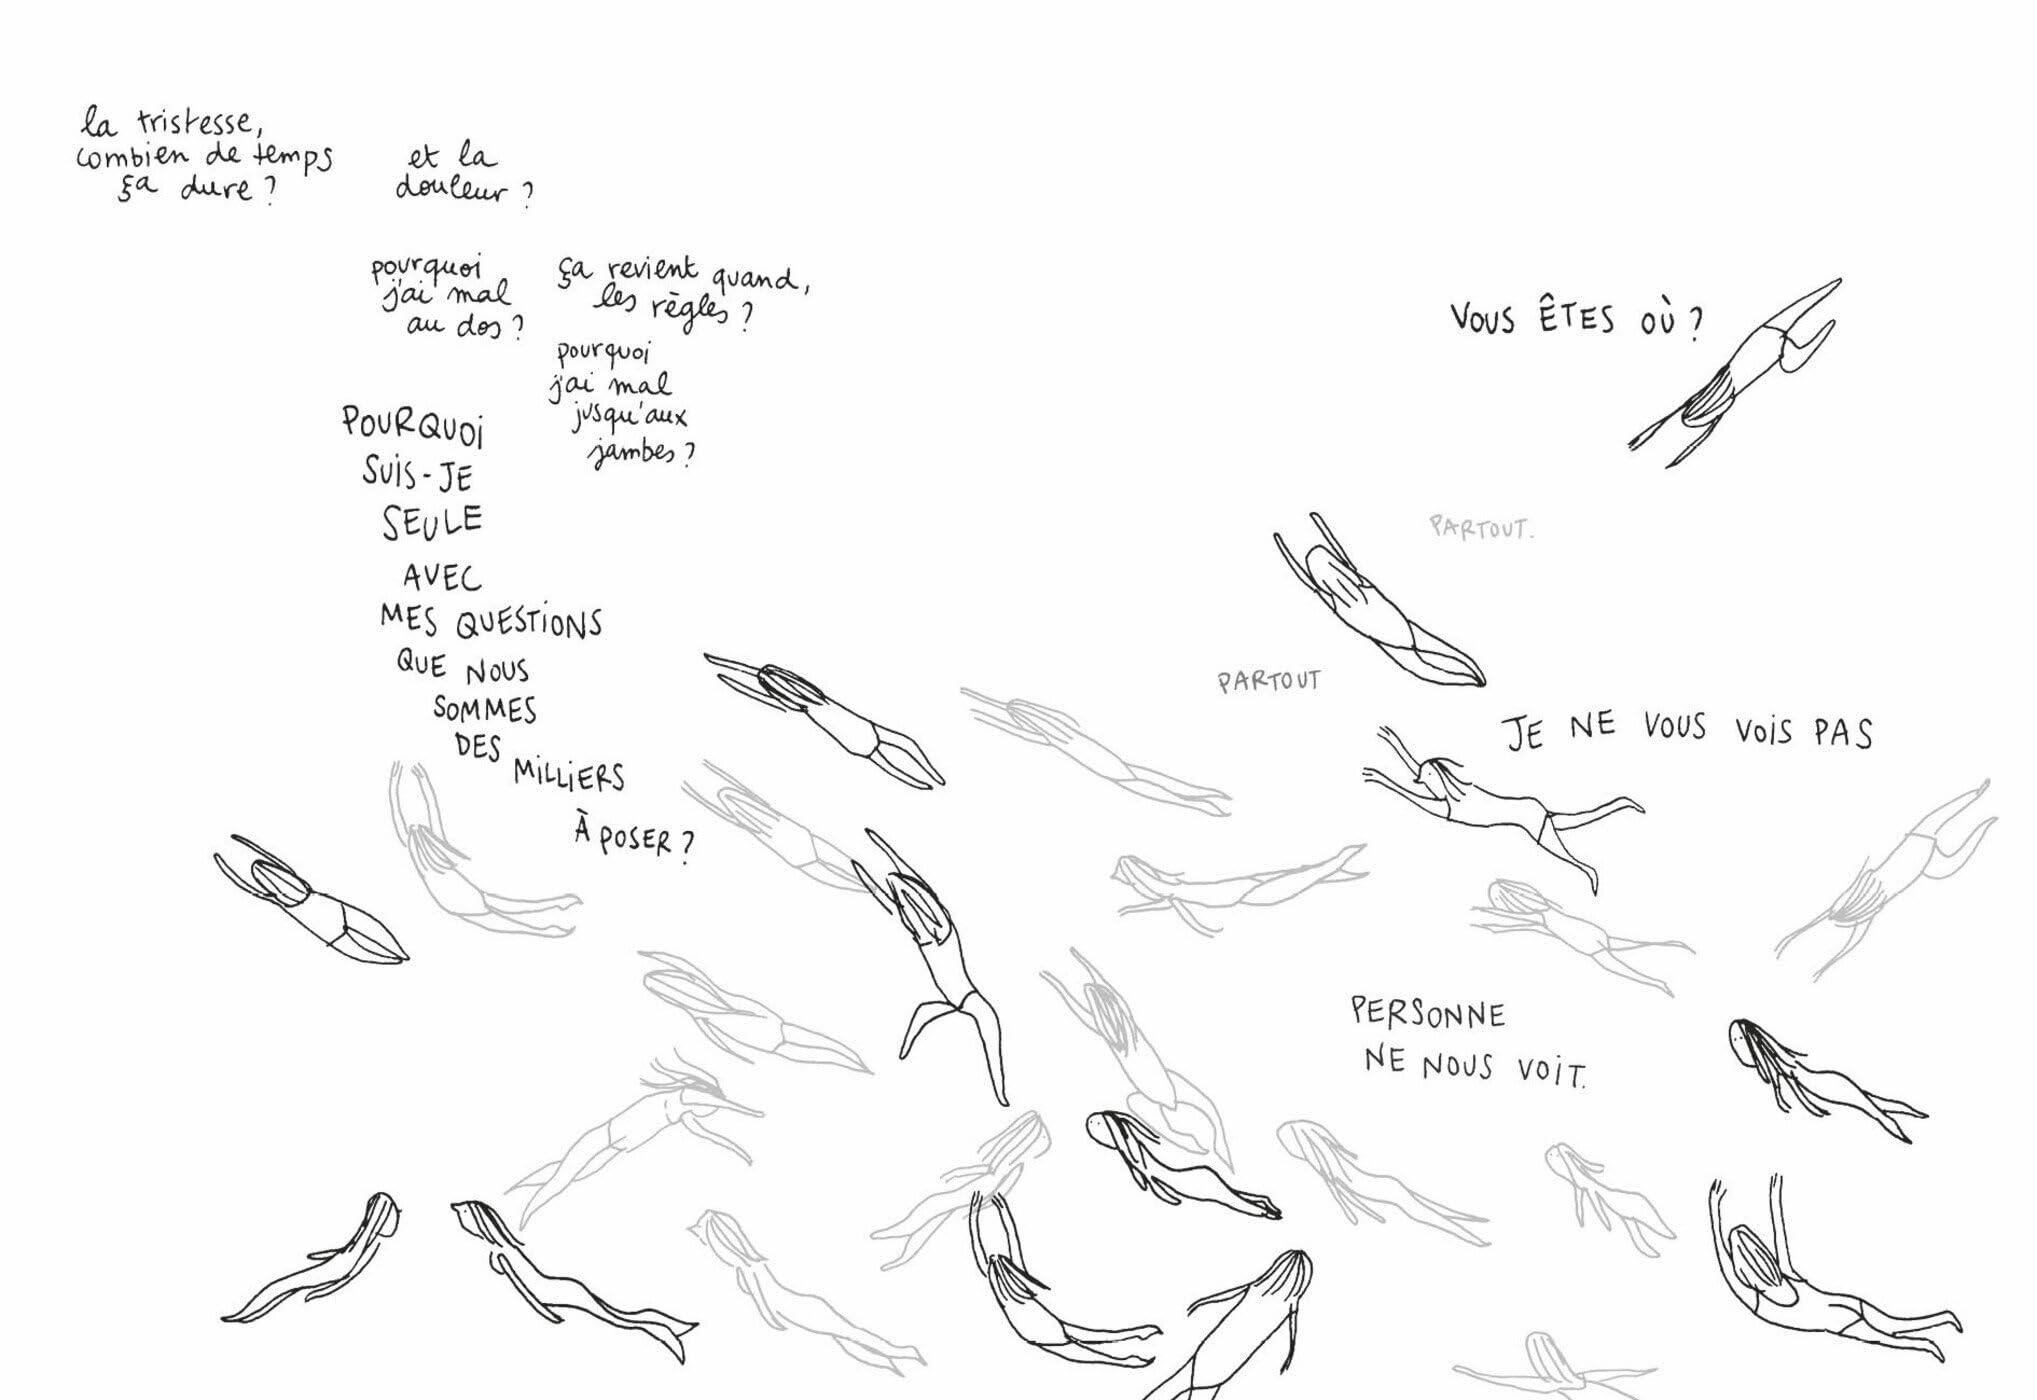 la tristesse,
combien de temps
ça dure ?
et la
douleur ?
pourquoi
j'ai mal
au dos ?
ça revient quand,
les règles ?
pourquoi
j'ai mal
jusqu'aux
jambes ?
POURQUOI
SUIS-JE
SEULE
AVEC
MES QUESTIONS
QUE NOUS
SOMMES
DES
MILLIERS
À POSER ?
VOUS ÊTES OÙ ?
PARTOUT.
PARTOUT
JE NE VOUS VOIS PAS
PERSONNE
NE NOUS VOIT.